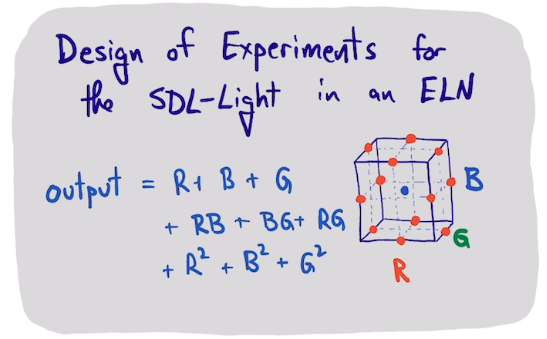 Design of Experiments for
the SDL-Light in an ELN
output = R+ B + G
+ RB + BG+ RG
+ R² + B² + G²
B
G
R